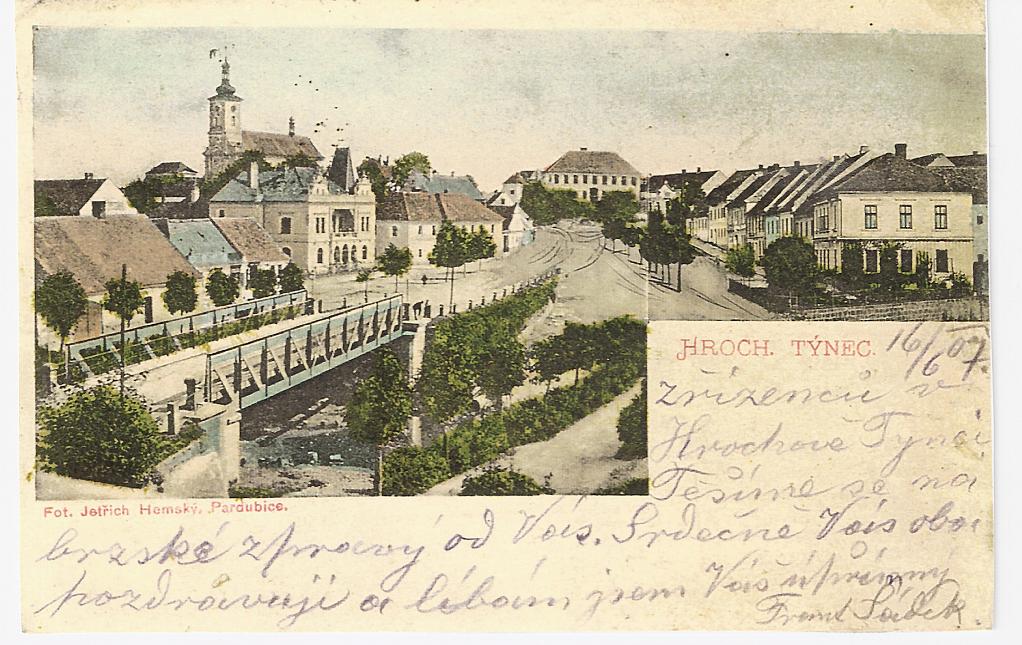 HROCH. TÝNEC.
16/6 07.
zřízenců v
Hrochově Týnci
Těšíme se na
Fot. Jetřich Hemský, Pardubice.
brzské zprávy od Vás. Srdečně Vás oba
pozdravuji a líbám jsem Váš úpřímný
Frant Sádek.